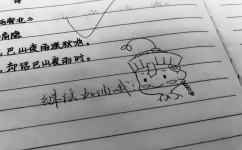 雨寄北》
巴山夜雨涨秋池。
却话巴山夜雨时。
继续加油哦!